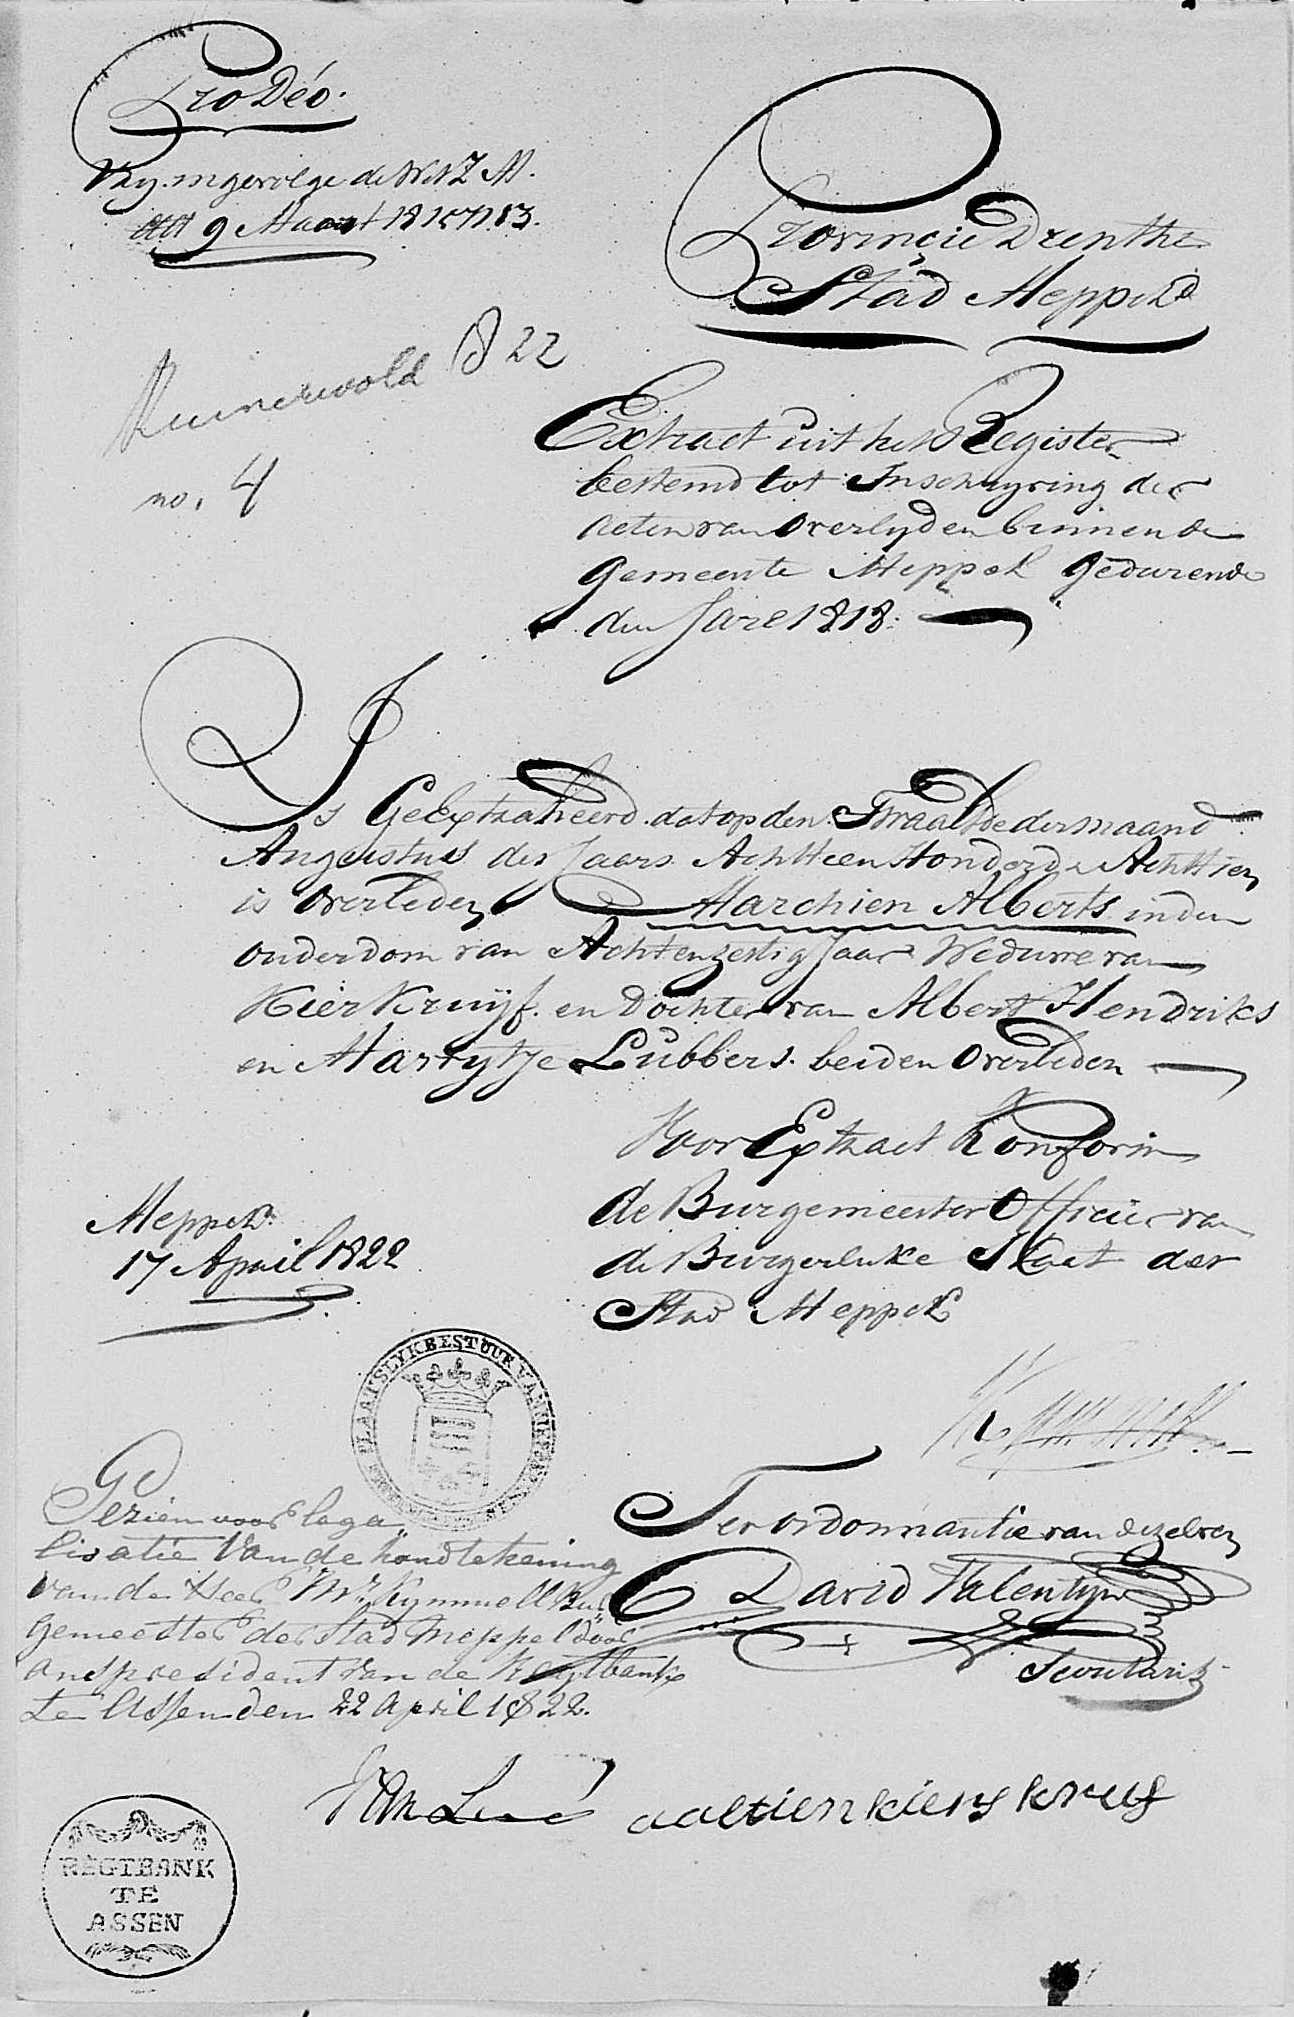 Pro Deo.
Vry ingevolge de Wet Z M.
dd 9 Maart 1815 n 13.
Provincie Drenthe
Stad Meppel
Ruinerwold 1822
no. 4
Extract uit het Register
bestemd tot Inschryving der
acten van overlyden binnen de
Gemeente Meppel Gedurende
den Jare 1818.
Is GeExtraheerd dat op den Twaalfde der maand
Augustus des Jaars Achttien Honderd Achttien
is Overleden Marchien Alberts in den
ouderdom van Achtenzestig Jaar Weduwe van
Kier Kruijf. en Dochter van Albert Hendriks
en Martytje Lubbers. beiden Overleden
Voor Extract Konform
de Burgemeester Officier van
de Burgerlyke Staet der
Stad Meppel
Meppel
17 April 1822
PLAATSLYK BESTUUR VAN
Ter ordonnantie van dezelven
David Valentyn
Secretaris
Gezien voor lega
lisatie van de handtekening
van de Heer Mr. Kymmell Bur
gemeester der Stad Meppel door
ons president van de Regtbank
te Assen den 22 April 1822.
aaltien kiers kruf
REGTBANK
TE
ASSEN